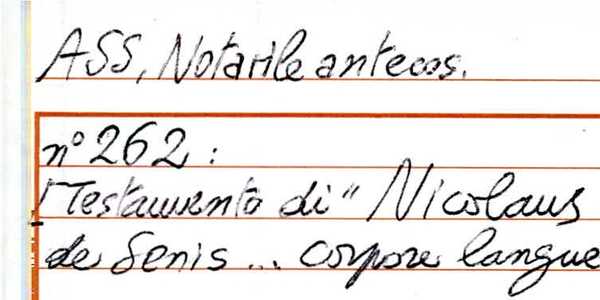 ASS, Notarile antecos.
n° 262:
Testamento di "Nicolaus
de Senis... corpore langue